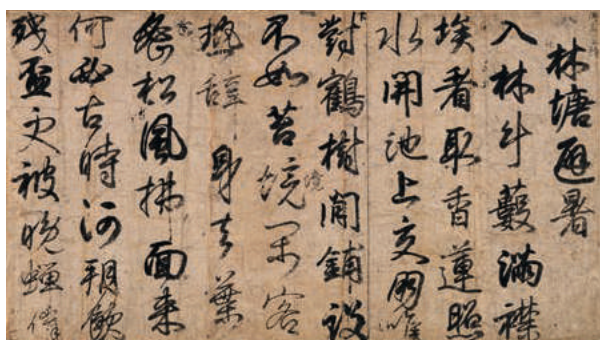 林塘避暑
入林斗藪滿襟
埃看取香蓮照
水開池上交朋唯
對鶴樹間鋪設
不如苔境閑客
熱辭身去葉
密松風拂面来
何必古時河朔飲
殘盃更被晚蟬催